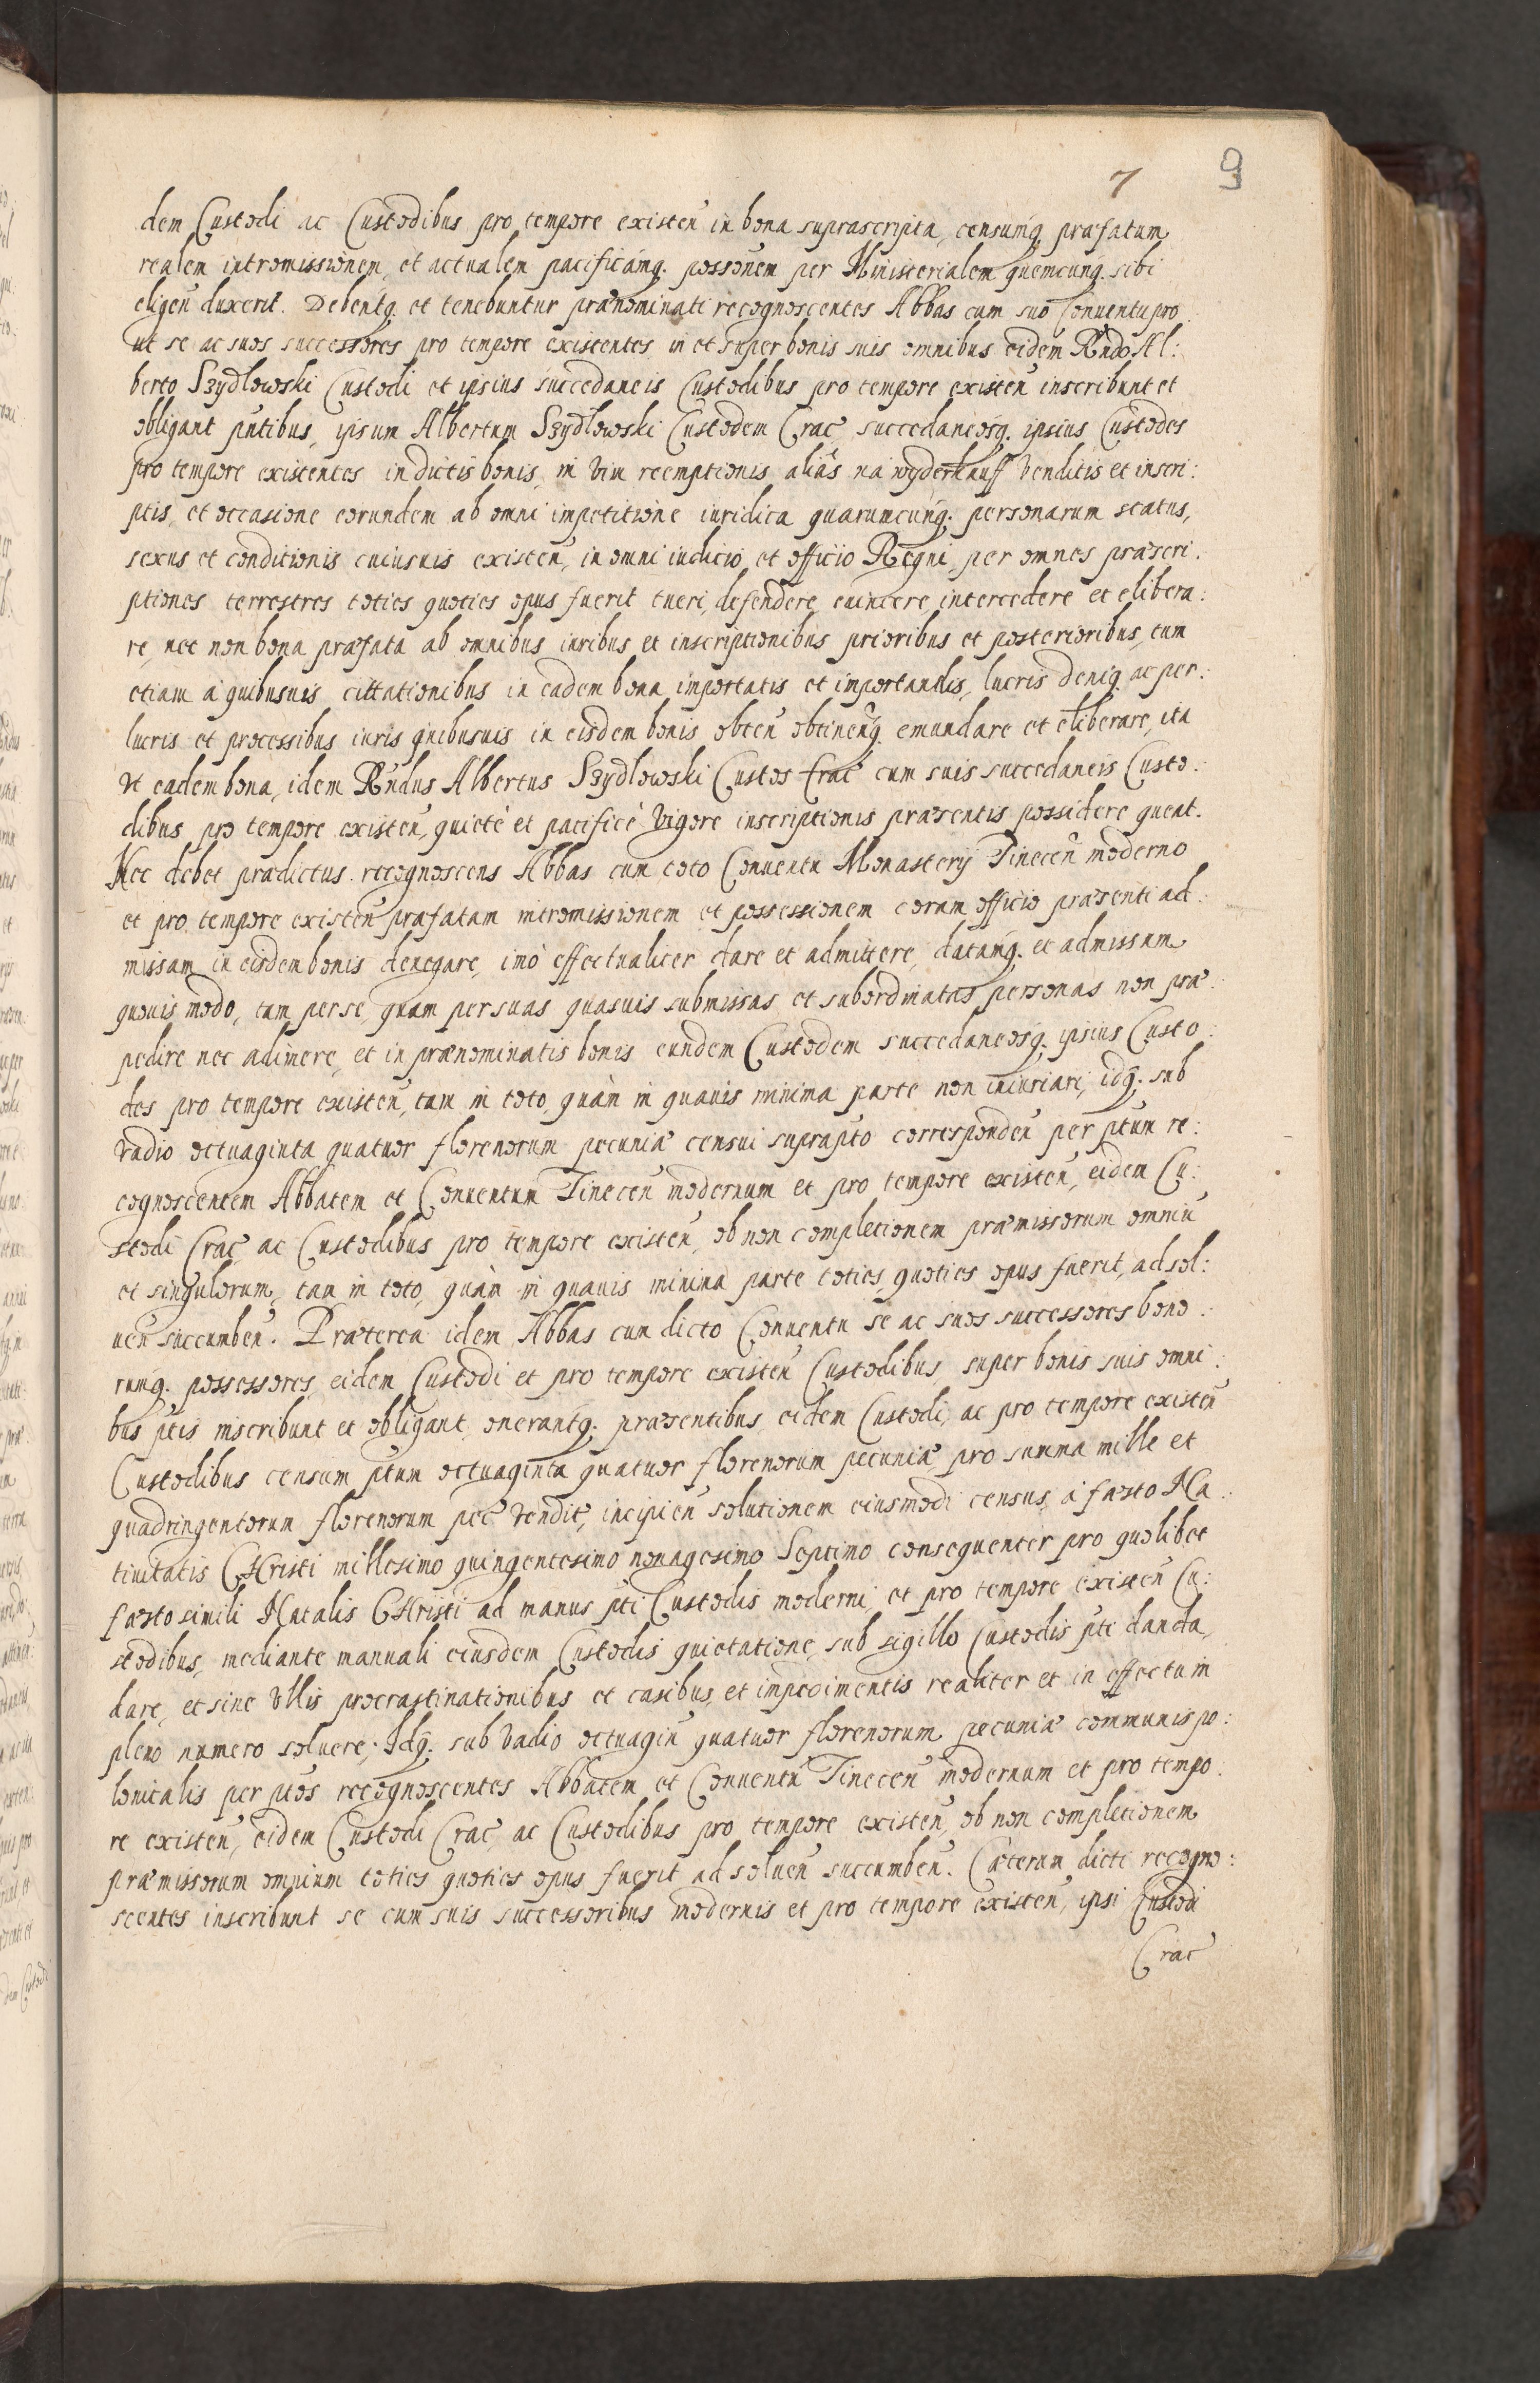 7 9
dem Custodi ac Custodibus pro tempore existen̄ in bona suprascripta, censumq́ præfatum
realem intromissionem, et actualem pacificamq́. possonem per Ministerialem quemcunq́. sibi
eligen̄ duxerit. Debentq́. et tenebuntur prænominati recognoscentes Abbas cum suo Conuentu pro:
ut se ac suos successores pro tempore existentes, in et super bonis suis omnibus eidem Rn̄do Al:
berto Szydlowski Custodi et ipsius succedaneis Custodibus pro tempore existen̄ inscribunt et
obligant pn̄tibus, ipsum Albertum Szydlowski Custodem Crac̄ succedaneosq́. ipsius Custodes
pro tempore existentes in dictis bonis, in vim reemptionis aliàs na wyderkauff venditis et inscri:
ptis, et occasione eorundem ab omni impetitione iuridica quarumcunq́. personarum status,
sexus et conditionis cuiusuis existen̄, in omni iudicio et officio Regni per omnes præscri:
ptiones terrestres toties quoties opus fuerit tueri, defendere, euincere, intercedere et elibera:
re, nec non bona præfata ab omnibus iuribus et inscriptionibus prioribus et posterioribus, tum
etiam à quibusuis cittationibus in eadem bona importatis et importandis, lucris deniq́ ac per:
lucris et processibus iuris quibusuis in eisdem bonis obten̄ obtinenq́. emundare et eliberare, ita
vt eadem bona, idem Rn̄dus Albertus Szydlowski Custos Crac̄ cum suis succedaneis Custo:
dibus pro tempore existen̄, quietè et pacificè vigore inscriptionis præsentis possidere queat.
Nec debet prædictus recognoscens Abbas cum toto Conuentu Monasterij Tinecen̄ moderno
et pro tempore existen̄ præfatam intromissionem et possessionem coram officio præsenti ad:
missam in eisdem bonis denegare, imò effectualiter dare et admittere, datamq́. et admissam
quouis modo, tam per se, quam per suas quasuis submissas et subordinatas personas non præ:
pedire nec adimere, et in prænominatis bonis eundem Custodem succedaneosq́. ipsius Custo:
des pro tempore existen̄, tam in toto, quàm in quauis minima parte non iniuriari, idq́. sub
vadio octuaginta quatuor florenorum pecuniæ censui suprap̄to corresponden̄ per p̄tum re:
cognoscentem Abbatem et Conuentum Tinecen̄ modernum et pro tempore existen̄, eidem Cu:
stodi Crac̄ ac Custodibus pro tempore existen̄, ob non completionem præmissorum omniū
et singulorum, tam in toto, quàm in quauis minima parte toties, quoties opus fuerit, ad sol:
uen̄ succumben̄. Præterea idem Abbas cum dicto Conuentu se ac suos successores bono:
rumq́. possessores, eidem Custodi et pro tempore existen̄ Custodibus, super bonis suis omni:
bus p̄tis inscribunt et obligant, onerantq́. præsentibus, eidem Custodi, ac pro tempore existen̄
Custodibus censum p̄tum octuaginta quatuor florenorum pecuniæ, pro summa mille et
quadringentorum florenorum pec̄ vendit̄, incipien̄ solutionem eiusmodi census, à fæsto Na:
tiuitatis CHristi millesimo quingentesimo nonagesimo Septimo consequenter pro quolibet
fæsto simili Natalis CHristi ad manus p̄ti Custodis moderni, et pro tempore existen̄ Cu:
stodibus, mediante manuali eiusdem Custodis quietatione, sub sigillo Custodis p̄ti danda,
dare, et sine vllis procrastinationibus et casibus, et impedimentis realiter et in effectu in
pleno numero soluere, Idq́. sub vadio octuagin̄ quatuor florenorum pecuniæ communis po:
lonicalis per p̄tos recognoscentes Abbatem et Conuentū Tinecen̄ modernum et pro tempo:
re existen̄, eidem Custodi Crac̄ ac Custodibus pro tempore existen̄, ob non completionem
præmissorum omnium toties quoties opus fuerit ad soluen̄ succumben̄. Cæterum dicti recogno:
scentes inscribunt se cum suis successoribus modernis et pro tempore existen̄, ipsi Custodi
Crac̄